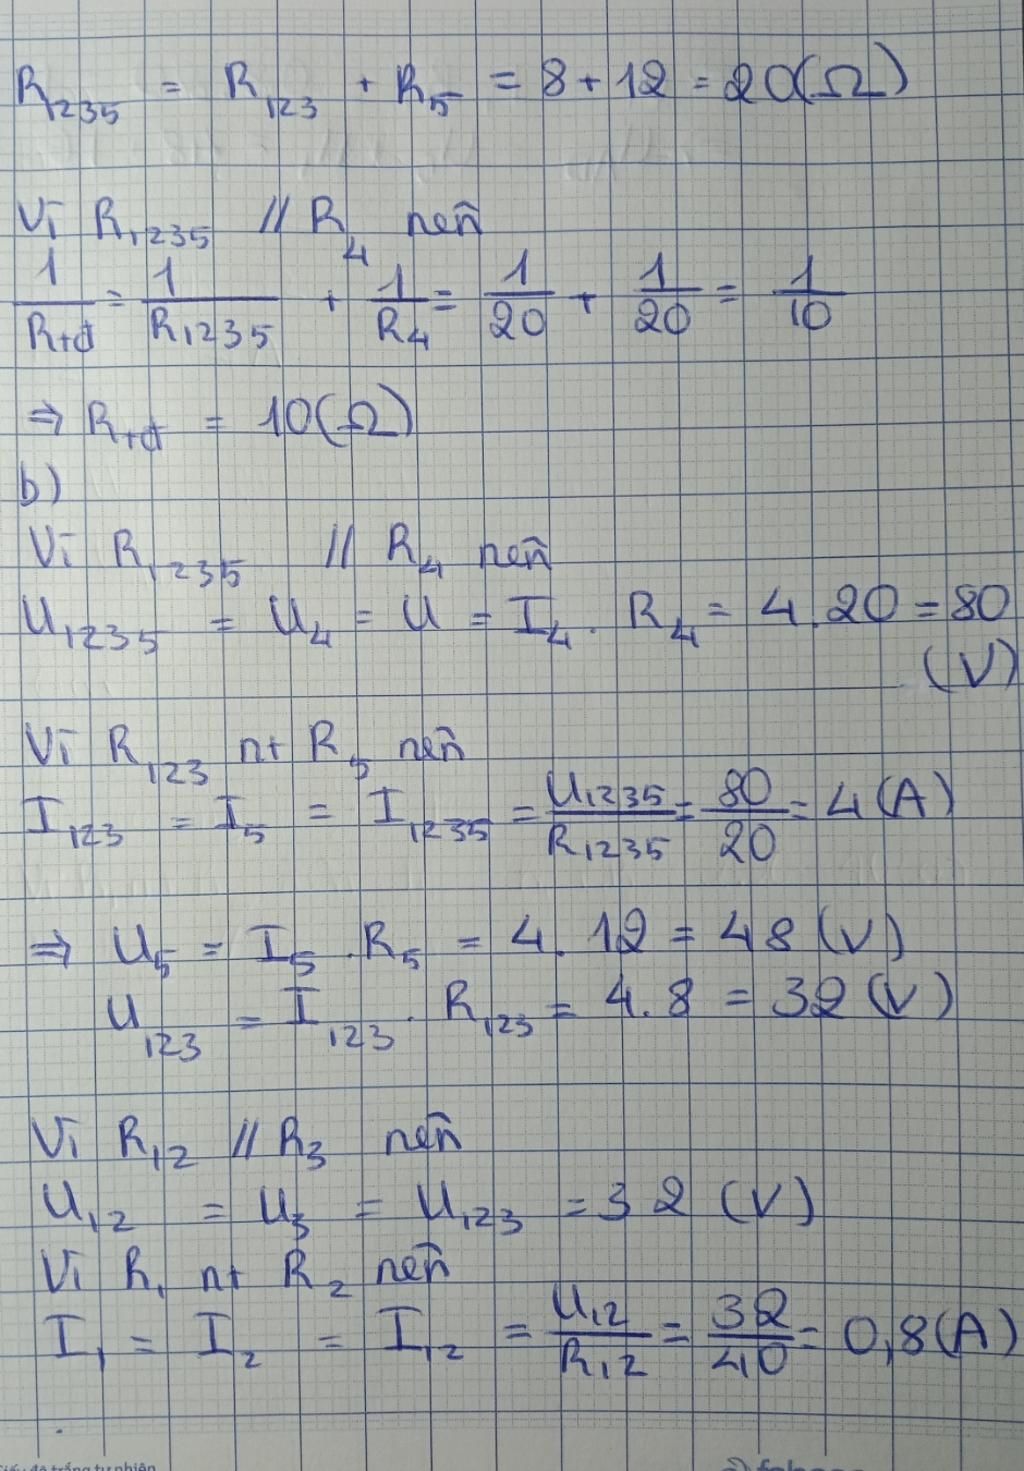 R₁₂₃₅ = R₁₂₃ + R₅ = 8 + 12 = 20(Ω)
Vì R₁₂₃₅ // R₄ nên
1/Rtđ = 1/R₁₂₃₅ + 1/R₄ = 1/20 + 1/20 = 1/10
⇒ Rtđ = 10(Ω)
b)
Vì R₁₂₃₅ // R₄ nên
U₁₂₃₅ = U₄ = U = I₄. R₄ = 4.20 = 80
(V)
Vì R₁₂₃ nt R₅ nên
I₁₂₃ = I₅ = I₁₂₃₅ = U₁₂₃₅/R₁₂₃₅ = 80/20 = 4(A)
⇒ U₅ = I₅ . R₅ = 4. 12 = 48 (V)
U₁₂₃ = I₁₂₃. R₁₂₃ = 4. 8 = 32 (V)
Vì R₁₂ // R₃ nên
U₁₂ = U₃ = U₁₂₃ = 32 (V)
Vì R₁ nt R₂ nên
I₁ = I₂ = I₁₂ = U₁₂/R₁₂ = 32/40 = 0,8(A)